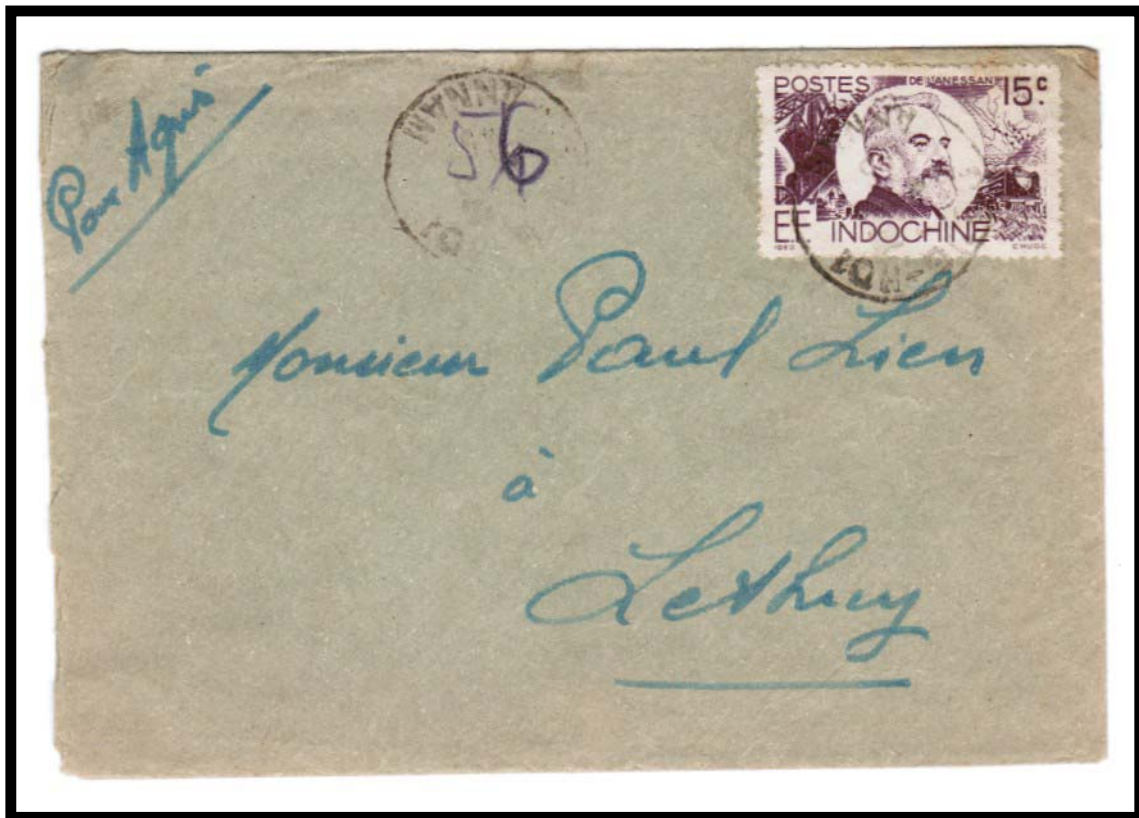 Pour Agnès
ANNAM
56
POSTES
DE LANESSAN
15c
E.F INDOCHINE
ANN
Monsieur Paul Lien
à
Lethuy